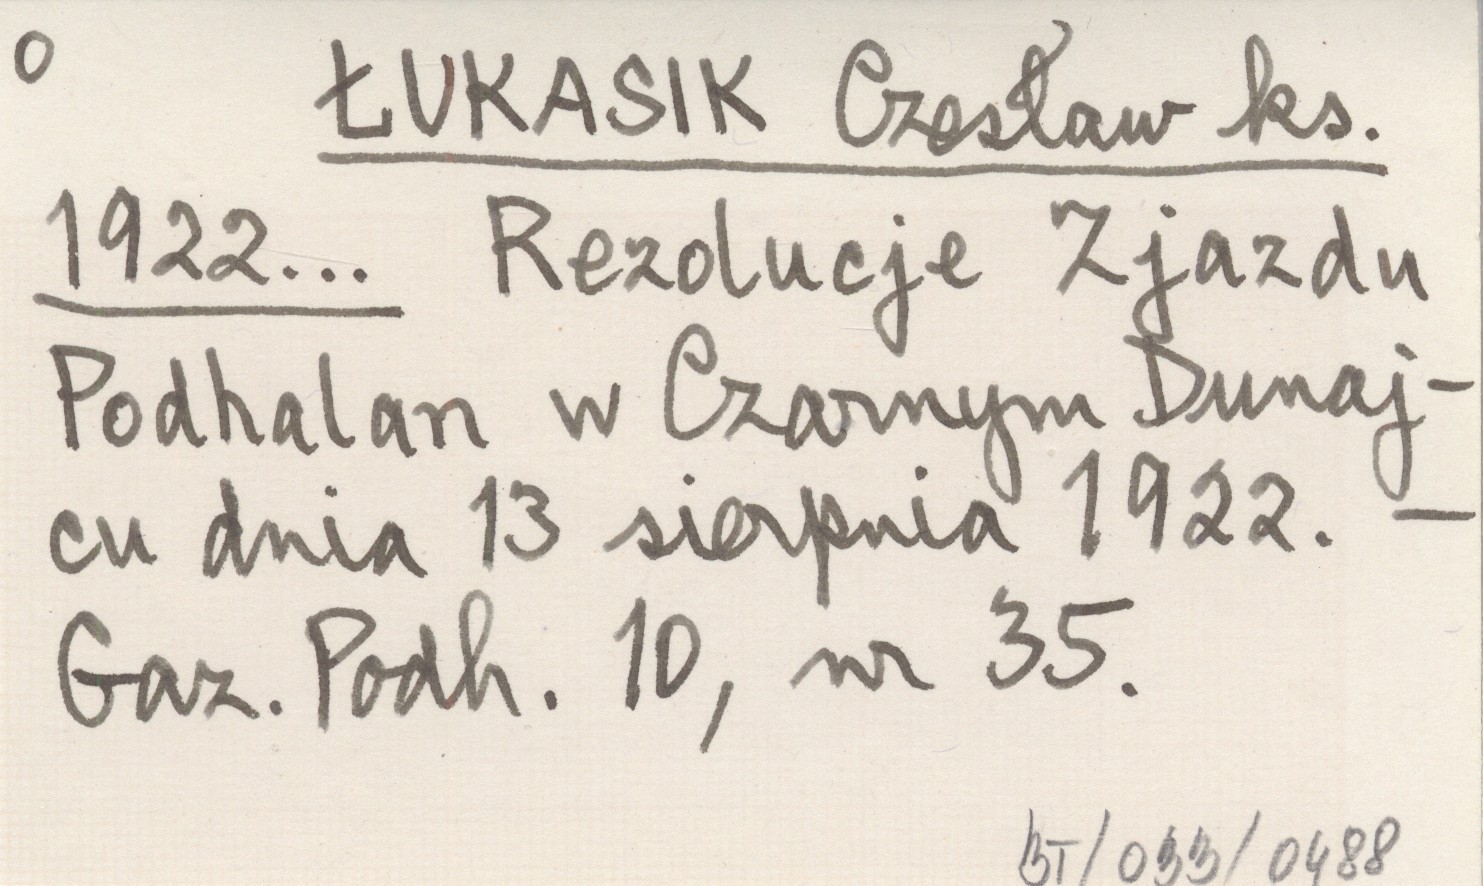 o
ŁUKASIK Czesław ks.
1922... Rezolucje Zjazdu
Podhalan w Czarnym Dunaj-
cu dnia 13 sierpnia 1922. —
Gaz. Podh. 10, nr 35.
BT/033/0488